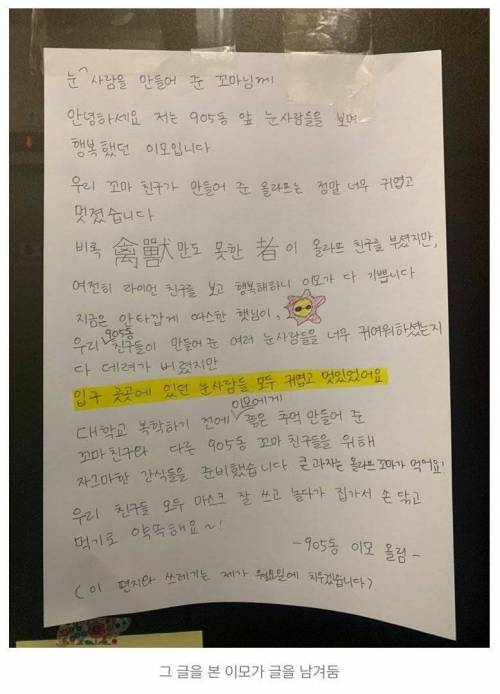 눈^사람을 만들어 준 꼬마님께
안녕하세요 저는 905동 앞 눈사람들을 보며
행복했던 이모입니다
우리 꼬마 친구가 만들어 준 올라프는 정말 너무 귀엽고
멋졌습니다
비록 禽獸만도 못한 者이 올라프 친구를 부셨지만,
여전히 라이언 친구를 보고 행복해하니 이모가 다 기쁩니다
지금은 안타깝게 따스한 햇님이,
우리 905동 친구들이 만들어준 여러 눈사람들을 너무 귀여워하셨는지
다 데려가 버렸지만
입구 곳곳에 있던 눈사람들 모두 귀엽고 멋있었어요
대학교 복학하기 전에 이모에게 좋은 추억 만들어 준
꼬마친구와 다른 905동 꼬마 친구들을 위해
자그마한 간식들을 준비했습니다 큰과자는 올라프 꼬마가 먹어요!
우리 친구들 모두 마스크 잘 쓰고 놀다가 집가서 손 닦고
먹기로 약똑해요~!
-905동 이모 올림-
(이 편지와 쓰레기는 제가 월요일에 치우겠습니다)
그 글을 본 이모가 글을 남겨둠